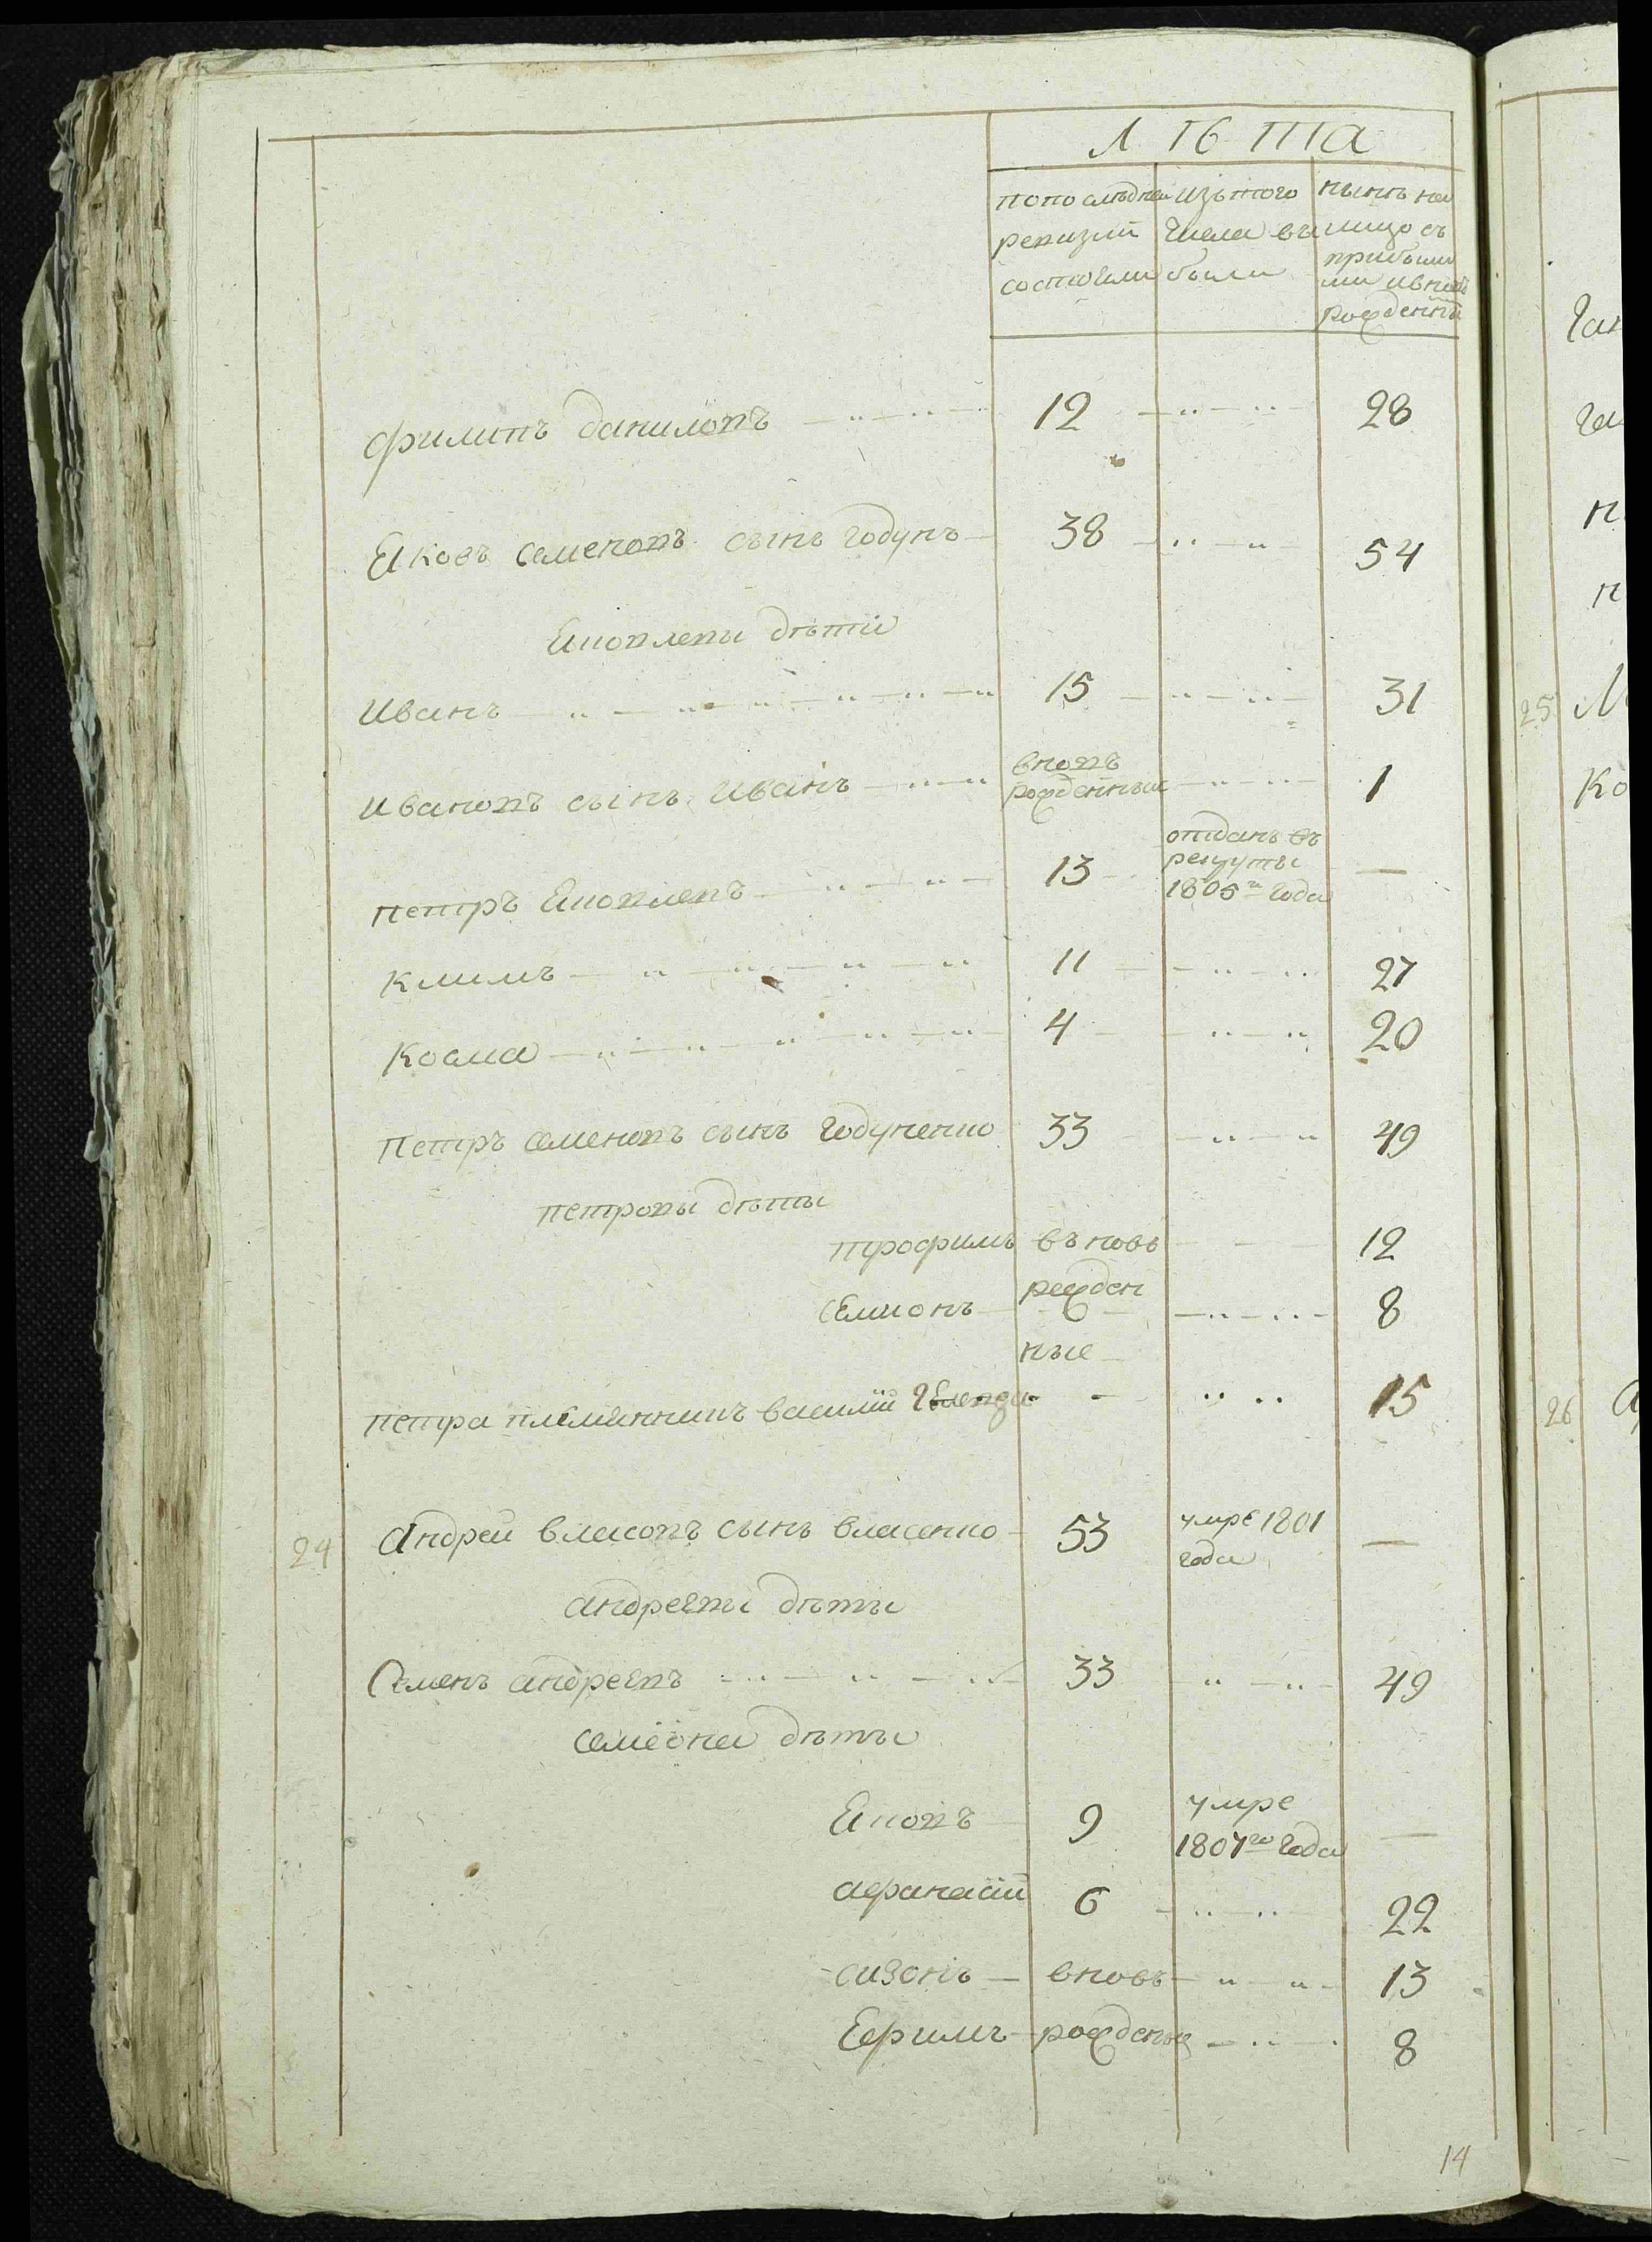 Лѣта
попослѣдней изътого нынѣ на
ревизии числа вы лицо съ
состояли были прибыли
ми ивновь
рожденны
филипъ даниловъ 12 28
Яковъ семеновъ сынъ годунъ 38 54
Яковлевы дѣти
Иванъ 15 31
Ивановъ сынъ Иванъ вновь рожденный 1
петръ Яковлевъ 13 отданъ въ рекруты 1805го года —
Климъ 11 27
Косма 4 20
Петръ семеновъ сынъ годуненко 33 49
петровы дѣты
трофимъ въновь 12
Семионъ рожден 8
ные
петра племянникъ василий 15
24 Андрей власовъ сынъ власенко 53 умре 1801 года —
андреевы дѣты
Семенъ андреевъ 33 49
семіона дѣты
Яковъ 9 умре 1807го года —
афанасий 6 22
сизонъ вновь 13
Ефимъ рожденыя 8
14
25
Ко
26